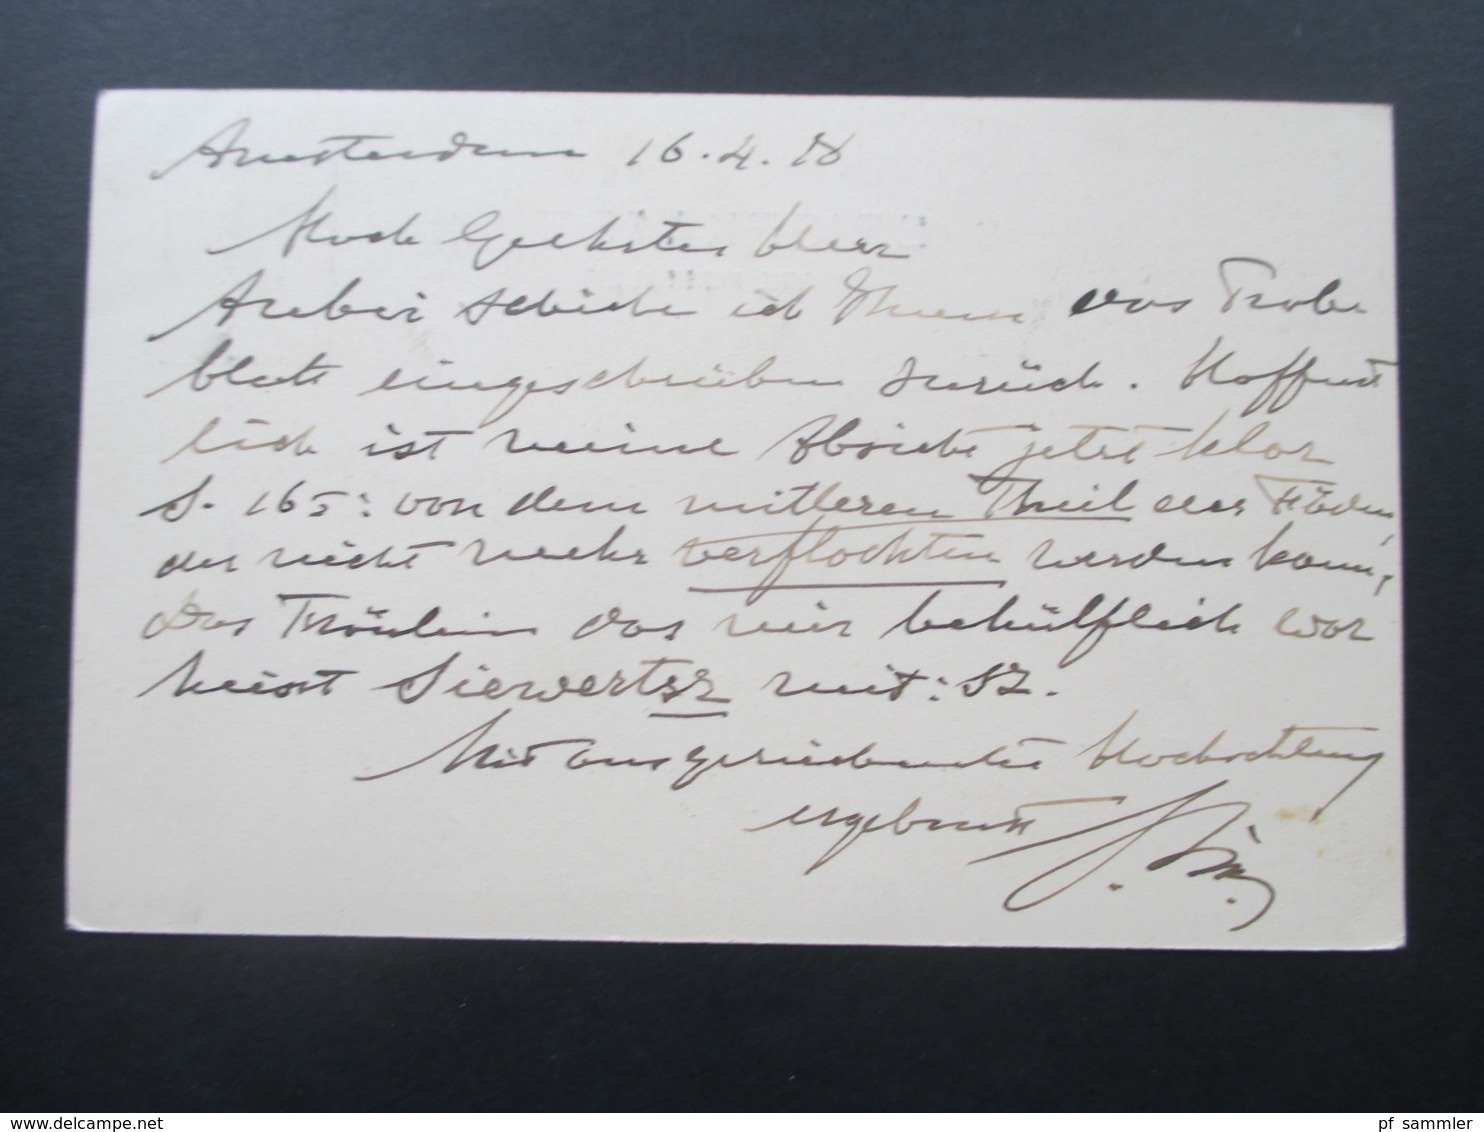 Amsterdam 16.4.18
Hoch Geehrter Herr
Anbei schicke ich Ihnen das Probe
blatt eingeschrieben zurück. Hoffent
lich ist meine Absicht jetzt klar
S. 165: von dem mittleren Theil der Fäden,
der nicht mehr verflochten werden kann,
Das Fräulein das mir behülflich war
heisst Siewertsz mit: sz.
Mit ausgezeichneter Hochachtung
ergebenst
www.delcampe.net
pf_sammler